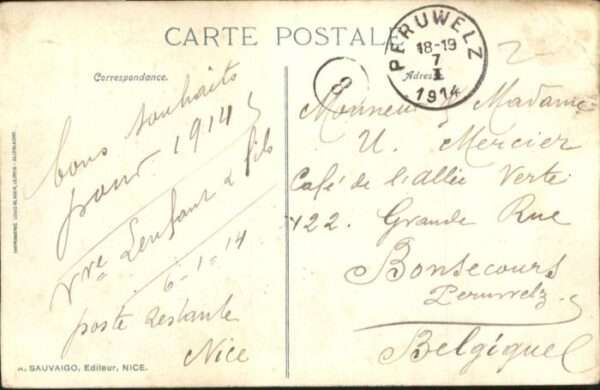 CARTE POSTALE
Correspondance.
Adresse
PERUWELZ
18-19
7
I
1914
3
bons souhaits
pour 1914
Vve Lenfant & fils
6-1-14
poste restante
Nice
Monsieur & Madame
U. Mercier
Café de l'allée Verte
422. Grande Rue
Bonsecours
Peruwelz
Belgique
A. SAUVAIGO, Editeur, NICE.